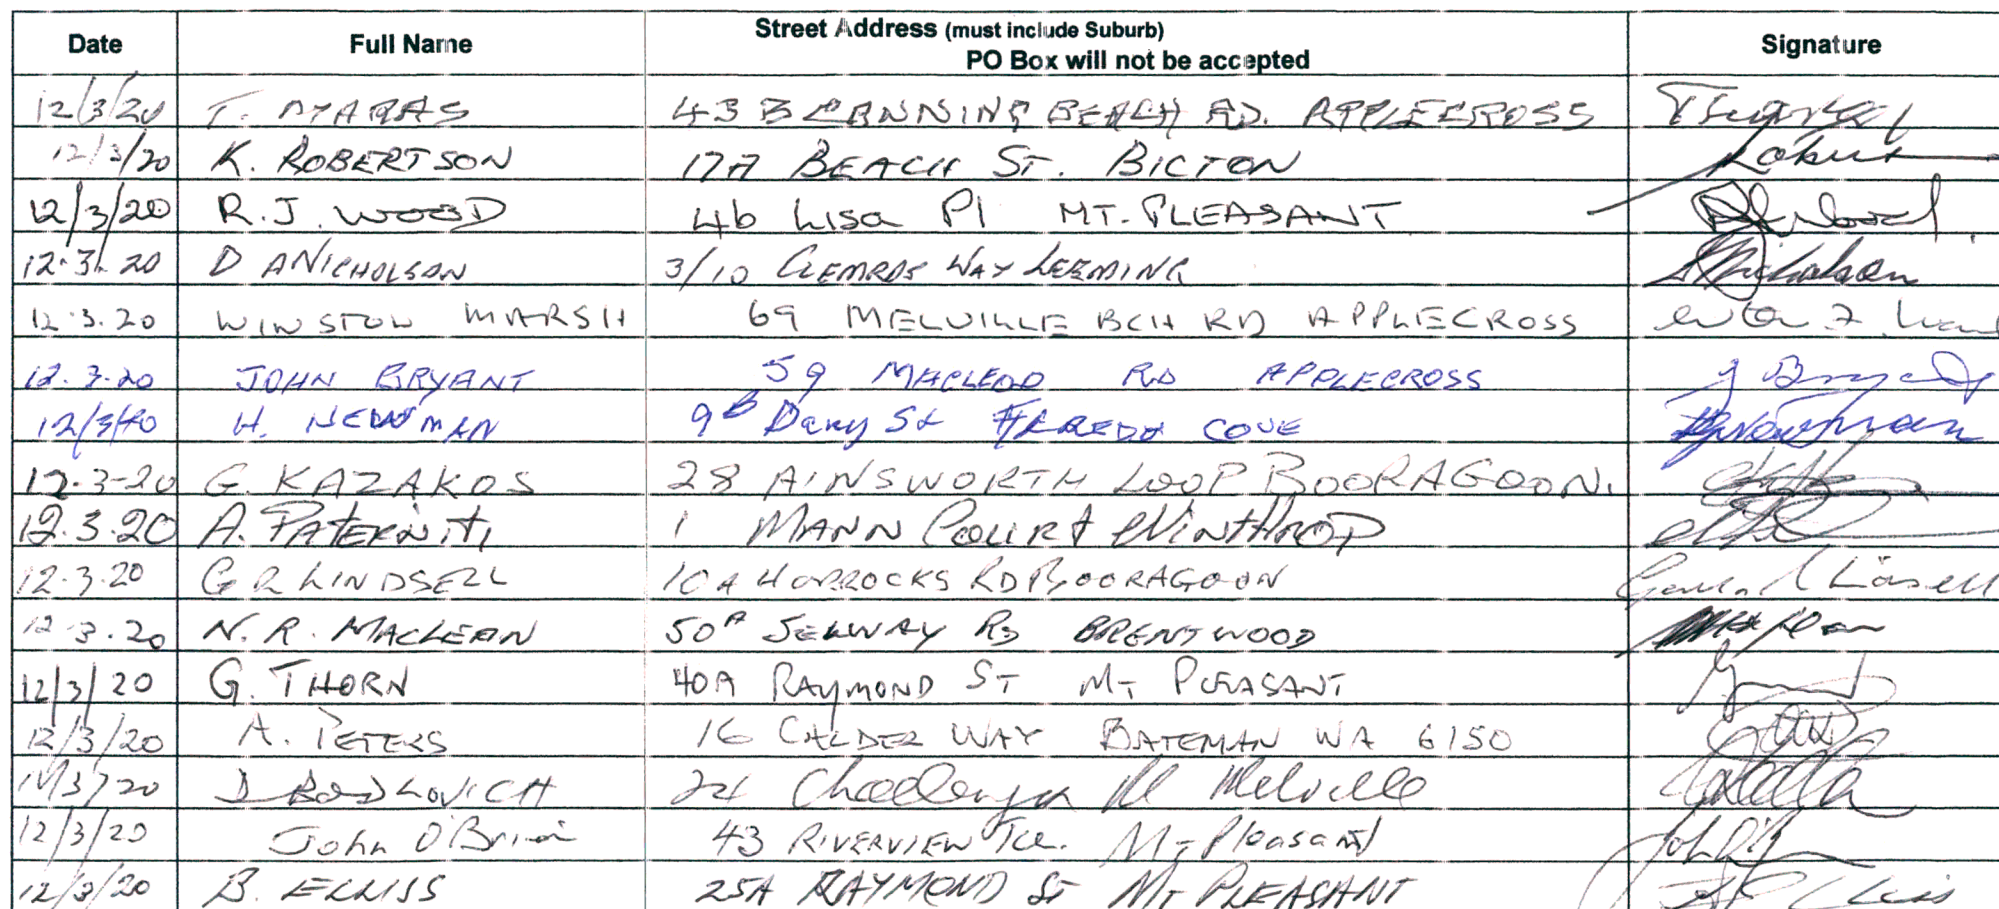 Date Full Name Street Address (must include Suburb) PO Box will not be accepted Signature
12/3/20 T. 43B CANNING BEACH RD. APPLECROSS
12/3/20 K. ROBERTSON 17A BEACH ST. BICTON
12/3/20 R.J. WOOD 4b Lisa Pl MT. PLEASANT
12.3.20 D A NICHOLSON 3/10 WAY LEEMING
12.3.20 WINSTON MARSH 69 MELVILLE BCH RD APPLECROSS
12.3.20 JOHN BRYANT 59 MACLEOD RD APPLECROSS J Bryant
12/3/20 H. NEWMAN 9B Davy St COVE HNewman
12.3-20 G. KAZAKOS 28 AINSWORTH LOOP BOORAGOON.
12.3.20 A. PATERNITI 1 MANN COURT WINTHROP
12.3.20 G R LINDSELL 10A HORROCKS RD BOORAGOON
12.3.20 N. R. MACLEAN 50A SELWAY RD BRENTWOOD
12/3/20 G. THORN 40A RAYMOND ST MT PLEASANT
12/3/20 A. PETERS 16 CALDER WAY BATEMAN WA 6150
12/3/20 D 24 Challenger Pl Melville
12/3/20 John O'Brien 43 RIVERVIEW Tce. Mt Pleasant
12/3/20 B. ELLISS 25A RAYMOND ST MT PLEASANT